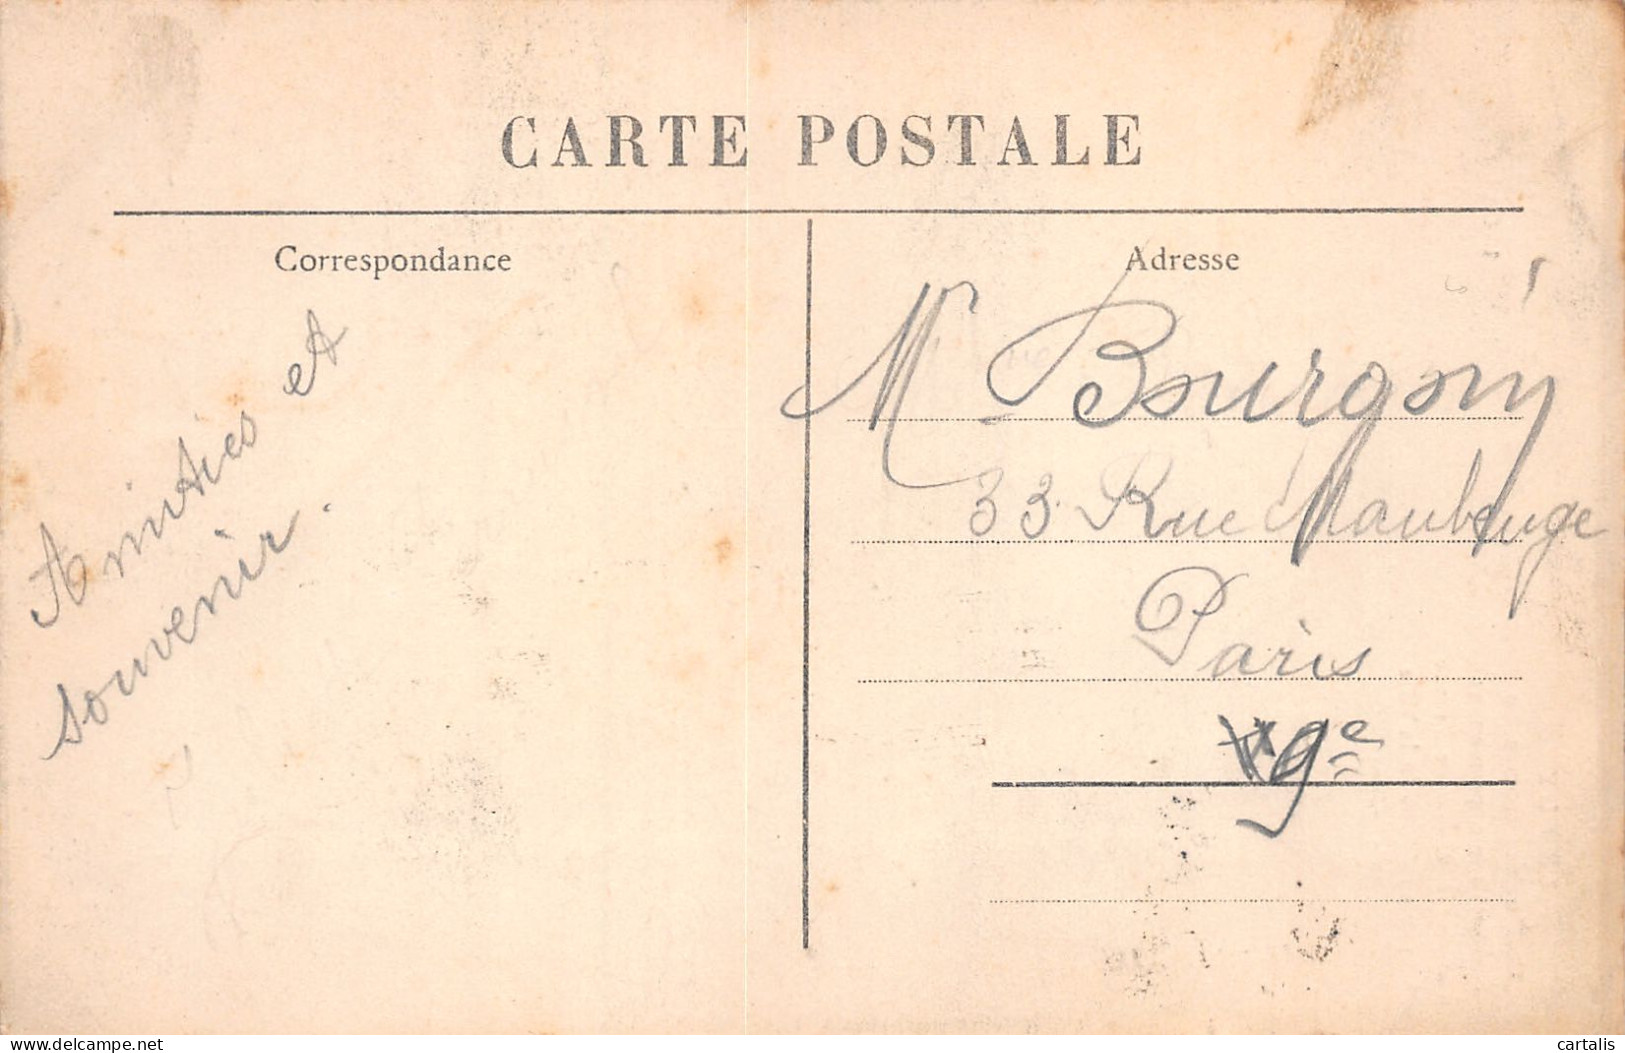 CARTE POSTALE
Correspondance
Amitiés et
souvenir.
Adresse
Mr Bourgoin
33 Rue Maubeuge
Paris
9e
delcampe.net
cartalis